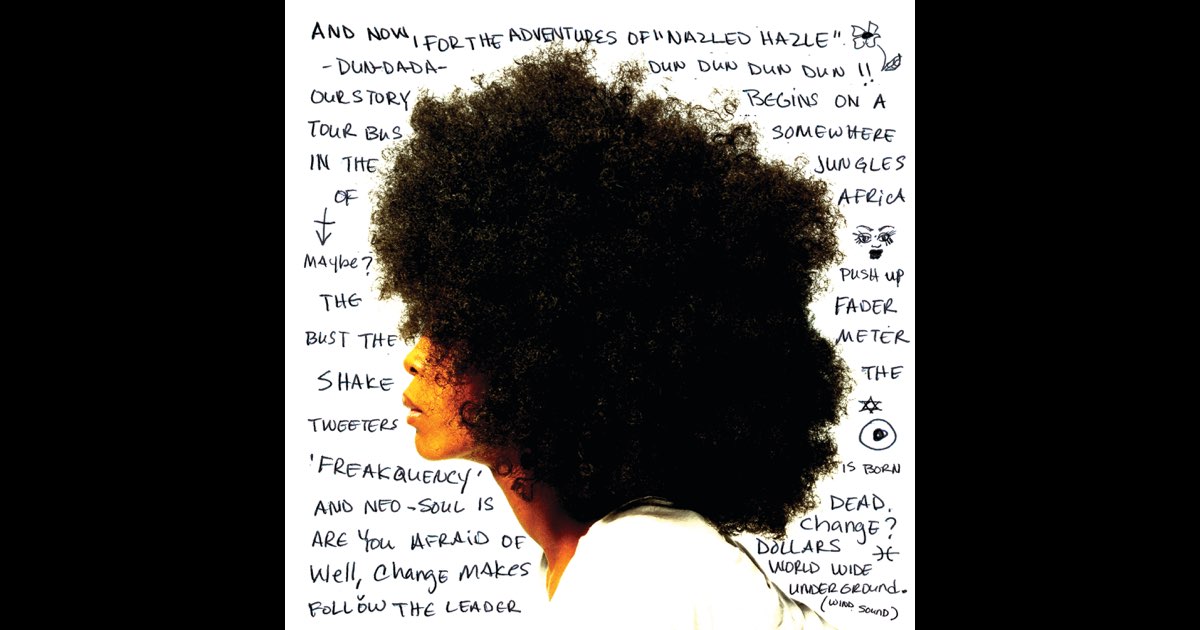 AND NOW, FOR THE ADVENTURES OF "NAZLED HAZLE".
-DUN-DADA- DUN DUN DUN DUN !!
OUR STORY BEGINS ON A
TOUR BUS SOMEWHERE
IN THE JUNGLES
OF AFRICA
MAYbe? PUSH UP
THE FADER
BUST THE METER
SHAKE THE
TWEETERS
'FREAKQUENCY' IS BORN
AND NEO-SOUL IS DEAD.
ARE YOU AFRAID OF Change?
Well, Change MAKES DOLLARS
FOLLOW THE LEADER WORLD WIDE
UNDERGROUND.
(WIND SOUND)